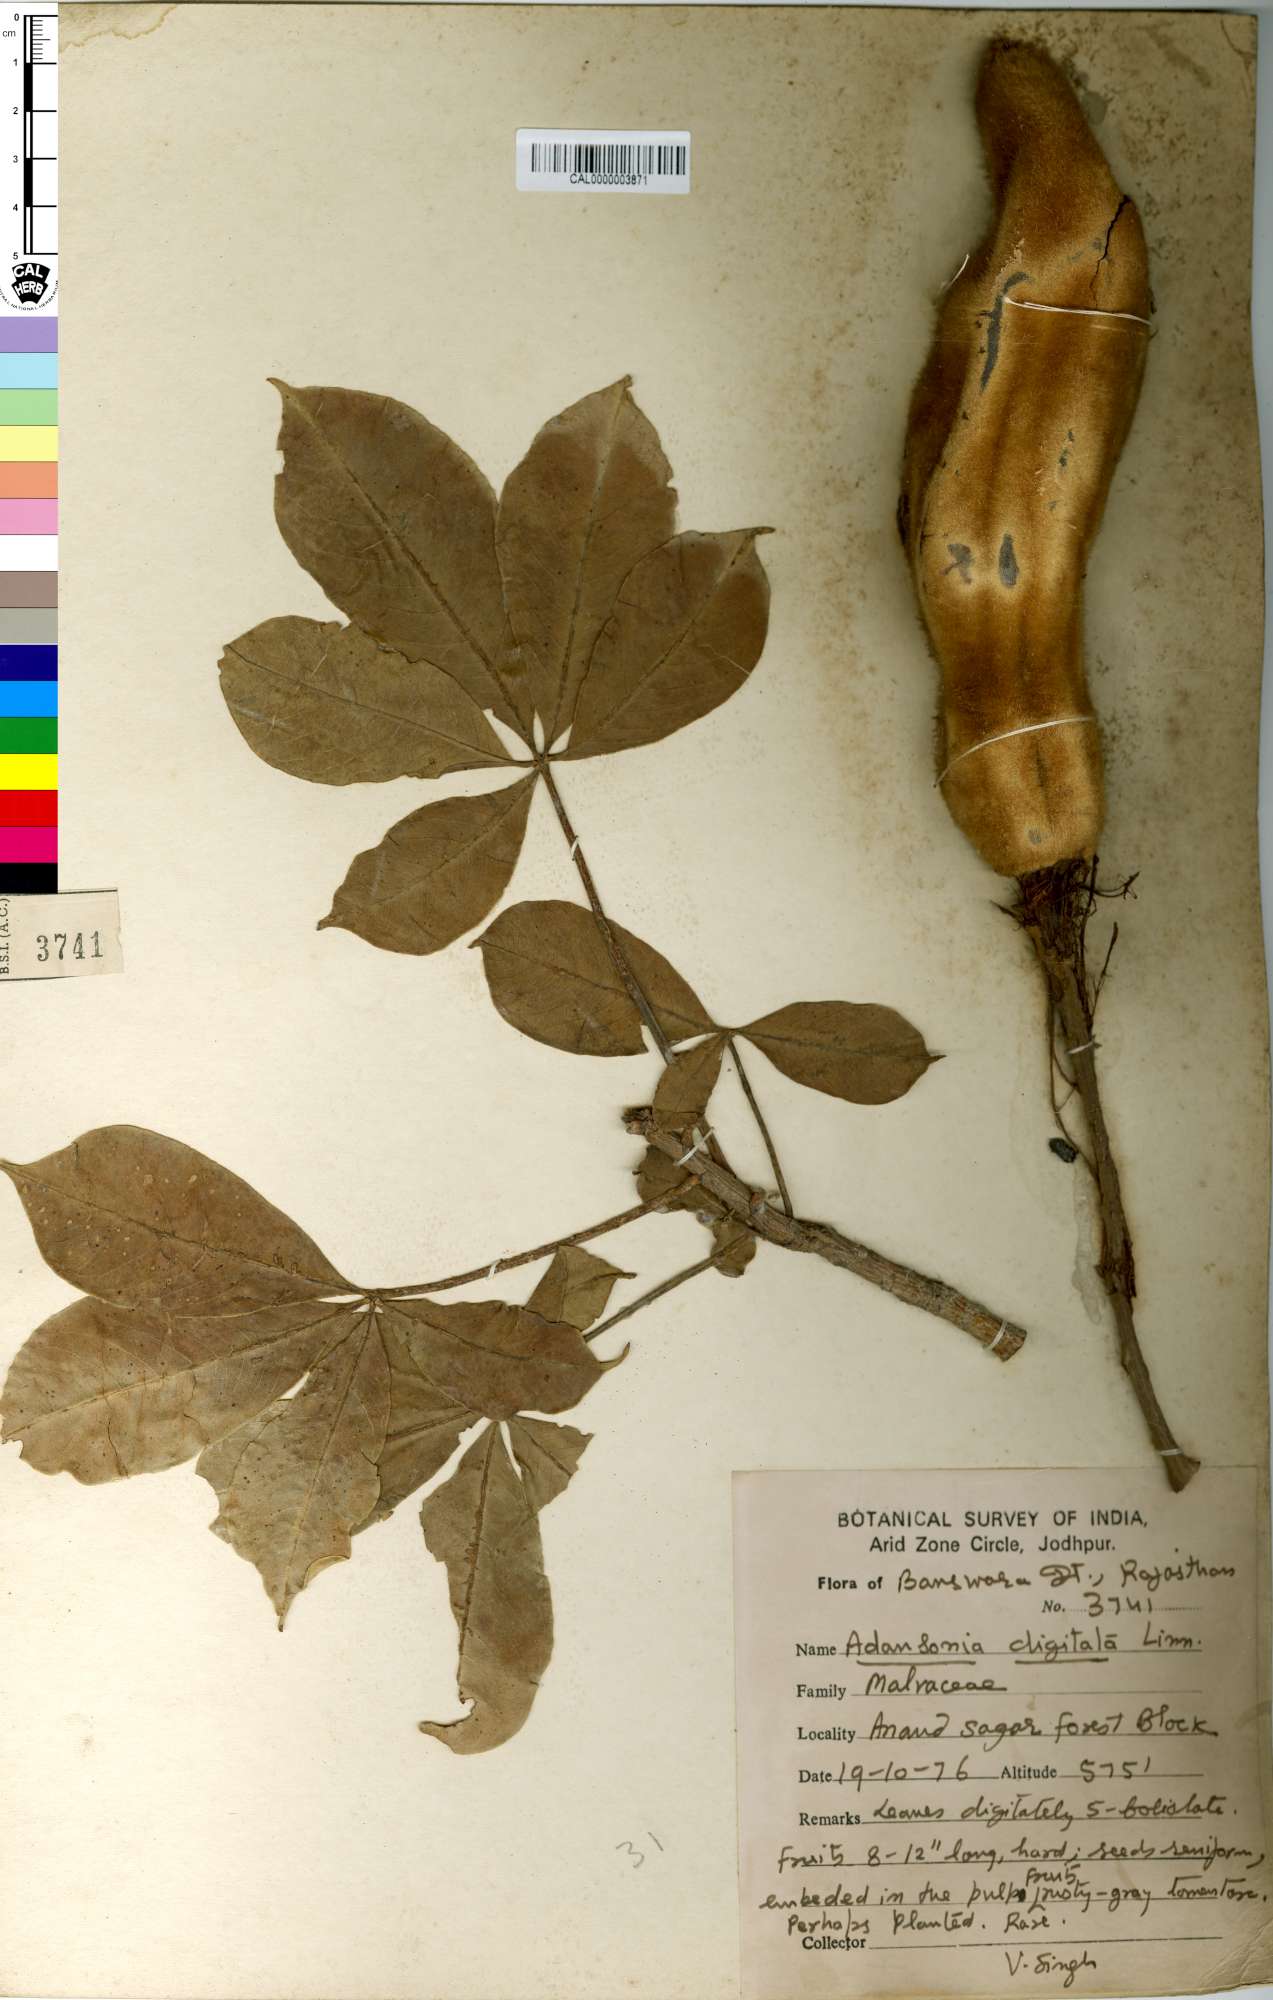 0
cm
1
2
3
4
5
CAL
HERB
CAL0000003871
B.S.I. (A.C.)
3741
BOTANICAL SURVEY OF INDIA,
Arid Zone Circle, Jodhpur.
Flora of Banswara Dt., Rajasthan
No. 3741
Name Adansonia digitata Linn.
Family Malvaceae
Locality Anand Sagar forest Block
Date 19-10-76 Altitude 575'
Remarks Leaves digitately 5-foliolate.
fruits 8-12" long, hard; seeds reniform,
fruits
embeded in the pulp rusty-gray tomentose.
Perhaps Planted. Rare.
Collector
V. Singh
31